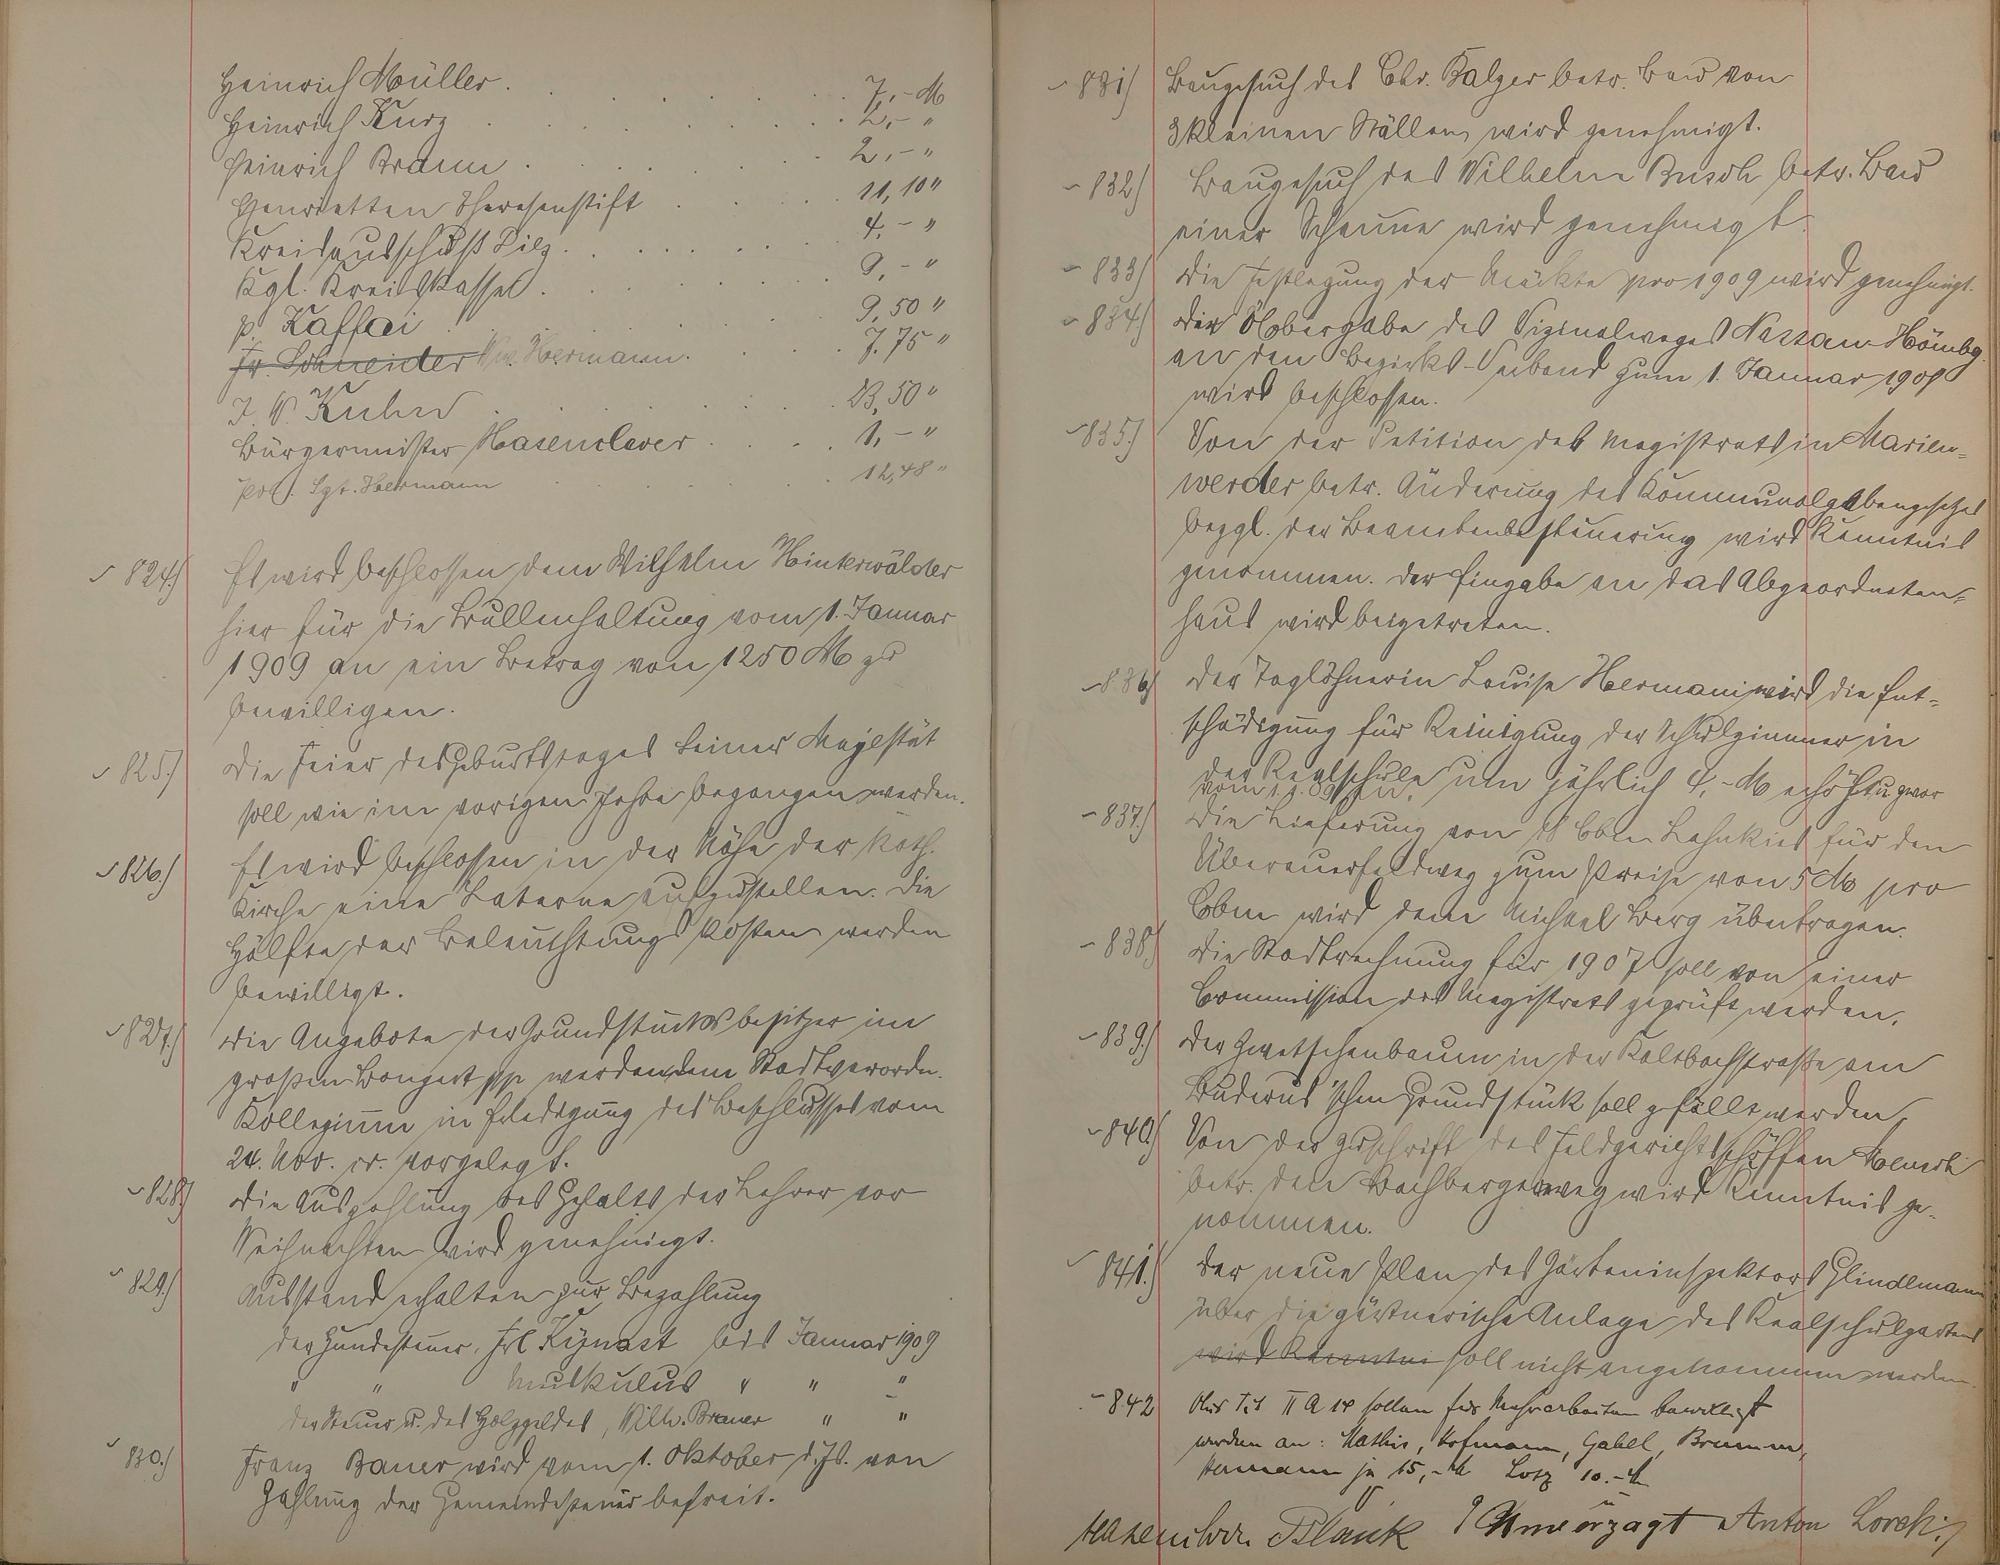 Heinrich Müller . . . . . . . . 7,- M
Heinrich Kurz . . . . . . . . 2,- "
Heinrich Bramm . . . . . . . 2,- "
Henrietten Theresenstift . . . . . 11,10 "
Kreisausschuß Diez . . . . . . . 4,- "
Kgl. Kreiskasse . . . . . . . 9,- "
p. Kaffai . . . . . . . 9,50 "
Fr. Schneider Ww. Hermann . . . . 7.75 "
J. W. Kuhn . . . . . . . 23,50 "
Bürgermeister Hasenclever . . . . 1,- "
Pol. Sgt. Hermann . . . . . . 12,48 "
824.) Es wird beschlossen dem Wilhelm Hinterwälder
hier für die Bullenhaltung vom 1. Januar
1909 an ein Betrag von 1250 M zu
bewilligen.
825.) Die Feier des Geburtstages Seiner Majestät
soll wie im vorigen Jahre begangen werden.
826.) Es wird beschlossen in der Nähe der kath.
Kirche eine Laterne aufzustellen. Die
Hälfte der Beleuchtungskosten werden
bewilligt.
827.) Die Angebote der Grundstücksbesitzer im
großen Bongert pp werden dem Stadtverordn.
Kollegium in Erledigung des Beschlusses vom
24. Nov. cr. vorgelegt.
828.) Die Auszahlung des Gehalts der Lehrer vor
Weihnachten wird genehmigt.
829.) Ausstand erhalten zur Bezahlung
der Hundesteuer, Frl Kynast bis Januar 1909
" " Muskulus " " "
der Steuer u. des Holzgeldes, Wilh. Bramer " "
830.) Franz Bauer wird vom 1. Oktober d. Js. von
Zahlung der Gemeindesteuer befreit.
831) Baugesuch des Chr. Balzer betr. Bau von
3 kleinen Ställen wird genehmigt.
832) Baugesuch des Wilhelm Busch betr. Bau
einer Scheune wird genehmigt.
833) Die Festlegung der Märkte pro 1909 wird genehmigt.
834.) Die Übergabe des Vizinalweges Nassau-Hömbg.
an den Bezirks-Verband zum 1. Januar 1909
wird beschlossen.
835.) Von der Petition des Magistrats in Marien-
werder betr. Änderung des Kommunalabgabengesetzes
bezgl. der Beamtenbesteuerung wird Kenntnis
genommen. Der Eingabe an das Abgeordneten-
haus wird beigetreten.
836) Der Taglöhnerin Louise Hermani wird die Ent-
schädigung für Reinigung der Schulzimmer in
der Realschule um jährlich 4,- M erhöht u. zwar
vom 1.1.09 an.
837.) Die Lieferung von cbm Lahnkies für den
Überauerfeldweg zum Preise von 5 M pro
Cbm wird dem Michael Berg übertragen.
838.) Die Stadtrechnung für 1907 soll von einer
Commission des Magistrats geprüft werden.
839.) Der Zwetschenbaum in der Kaltbachstraße am
Buderus'schen Grundstück soll gefällt werden.
840.) Von der Zuschrift des Feldgerichtsschöffen
betr. den Bachbergerweg wird Kenntnis ge-
nommen.
841.) Der neue Plan des Garteninspektors Glindemann
über die gärtnerische Anlage des Realschulgartens
wird Kenntni soll nicht angenommen werden.
842 Aus Tit II A 14 sollen für Mehrarbeiten bewilligt
werden an: Mathis, Hofmann, Gabel, Bramm,
Hermann je 15,- M Lotz 10.- M
Hasenclever Plank Unverzagt Anton Lorch.